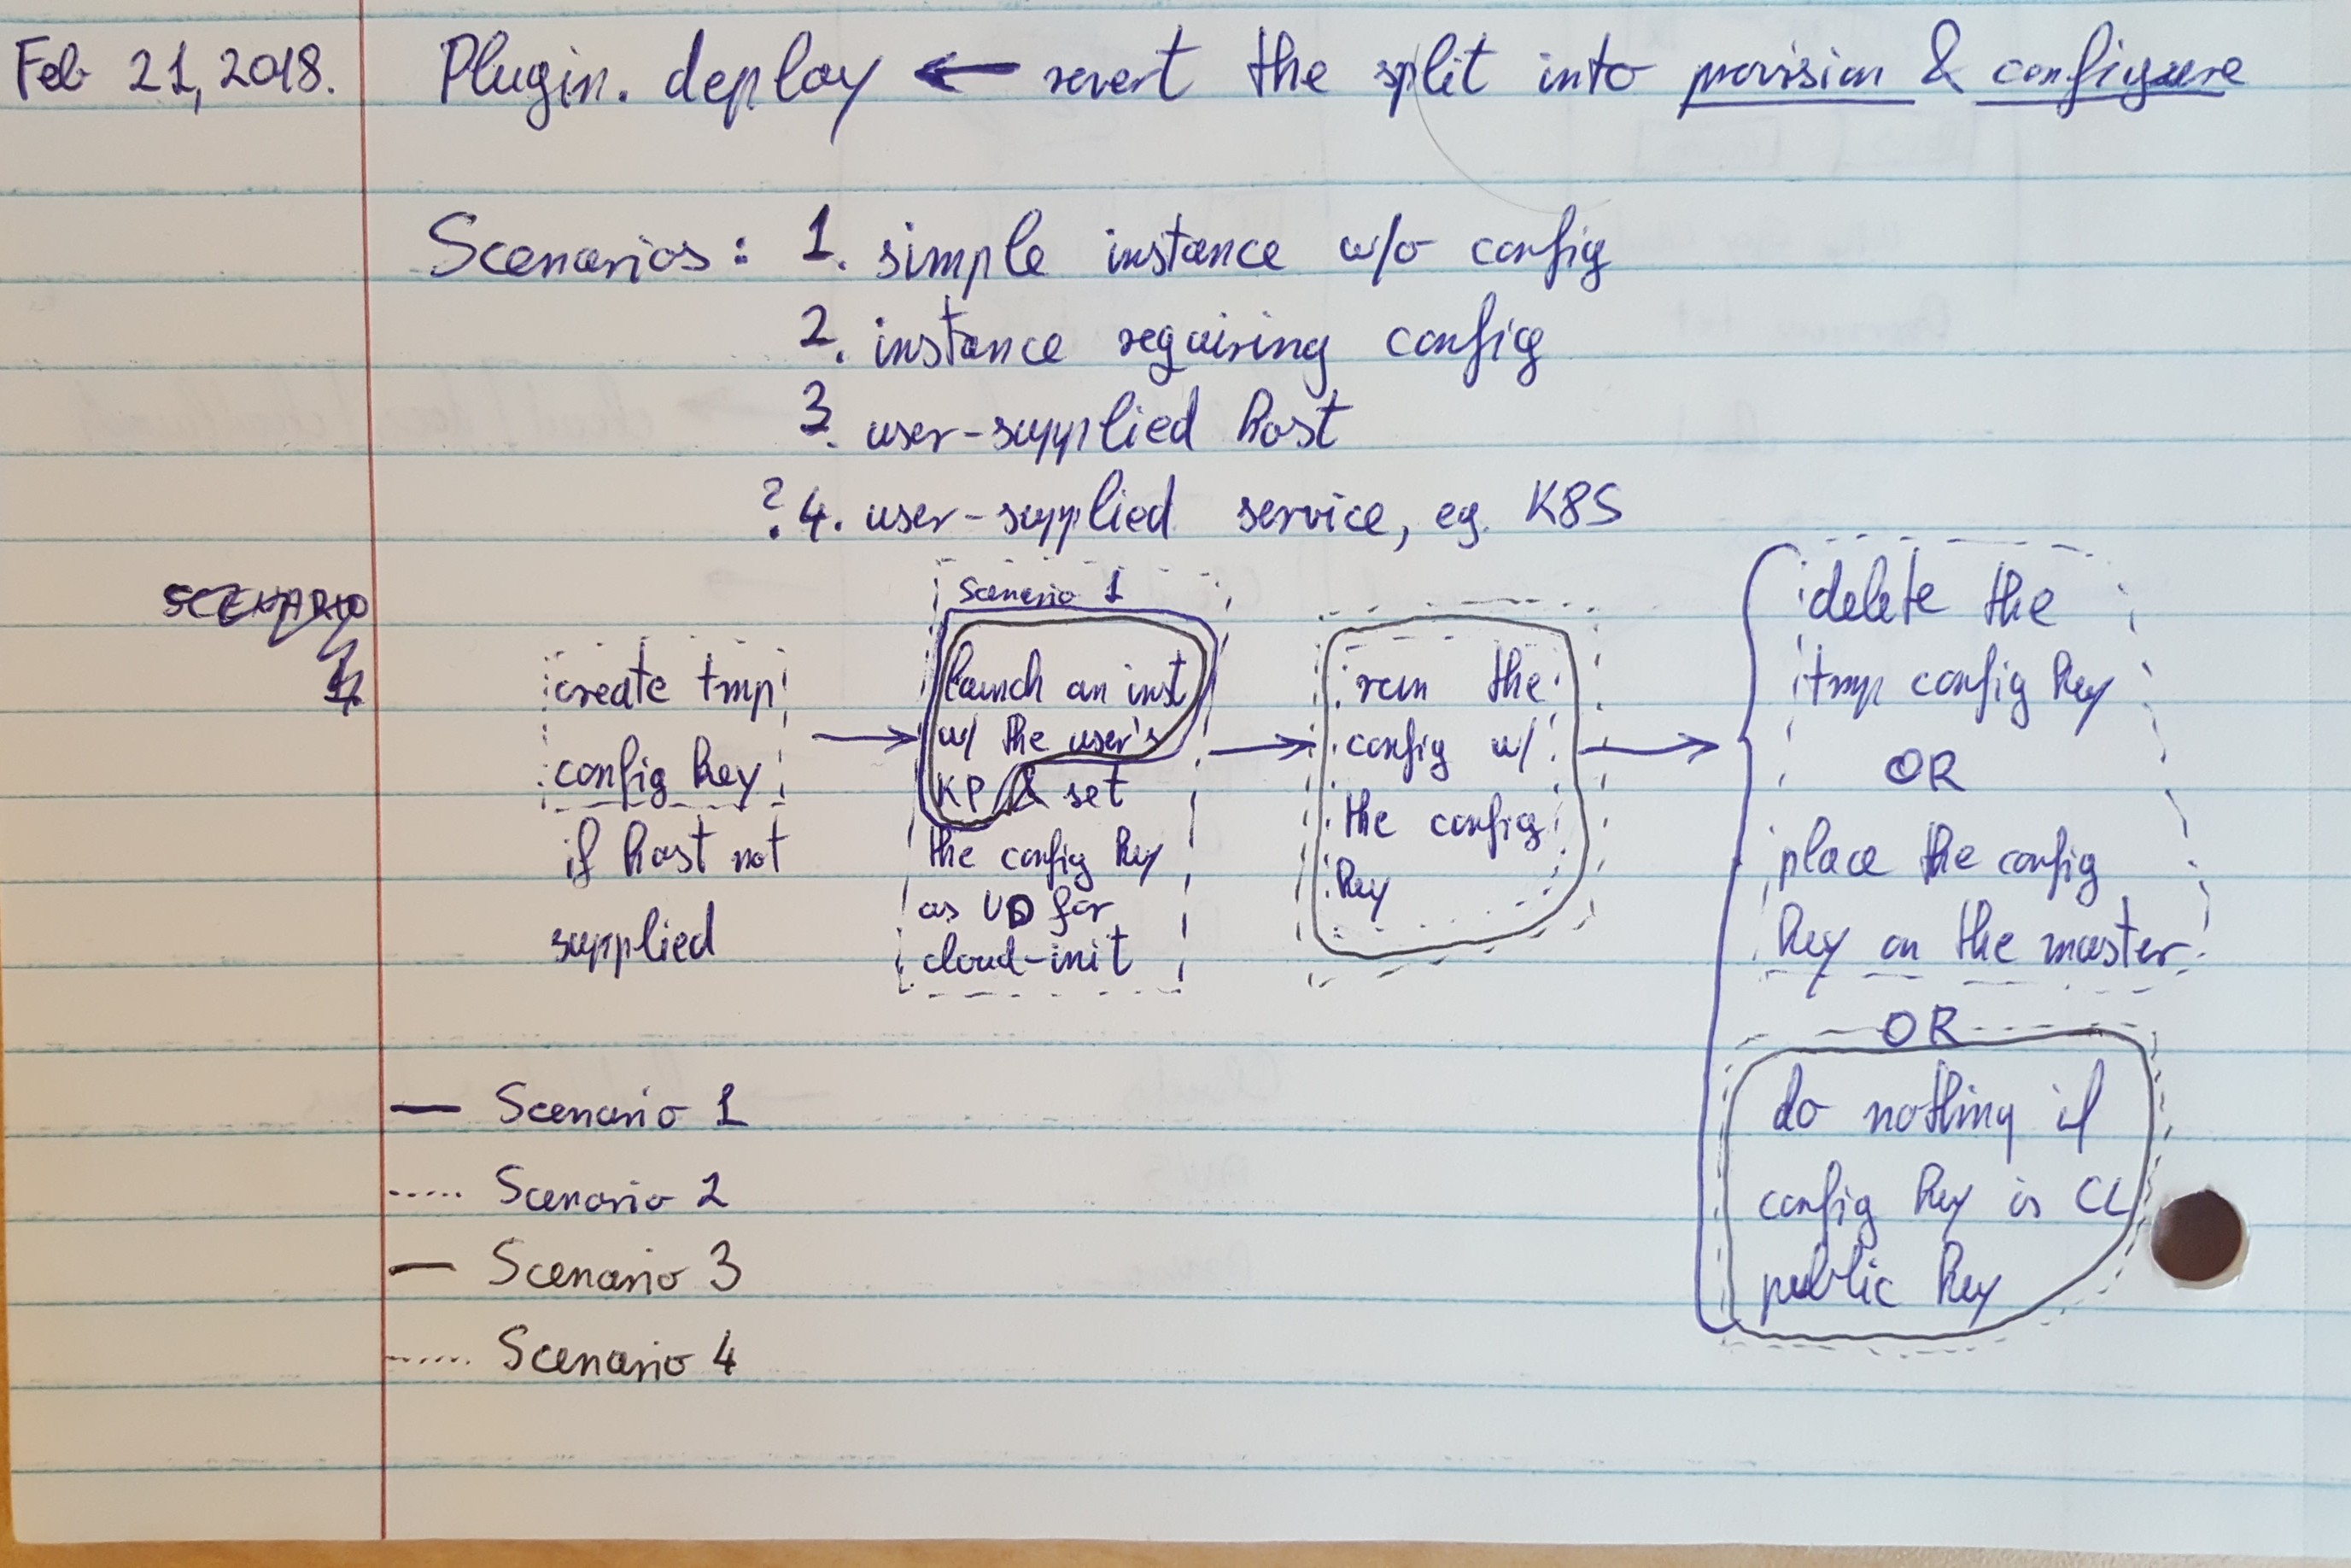 Feb 21, 2018.
Plugin. deploy ← revert the split into provision & configure
Scenarios: 1. simple instance w/o config
2. instance requiring config
3. user-supplied host
? 4. user-supplied service, eg. K8S
SCENARIO
1
create tmp
config key
if host not
supplied
→
Scenario 1
launch an inst
w/ the user's
KP & set
the config key
as UD for
cloud-init
→
run the
config w/
the config
key
→
delete the
tmp config key
OR
place the config
key on the master
OR
do nothing if
config key is CL
public key
— Scenario 1
..... Scenario 2
— Scenario 3
..... Scenario 4